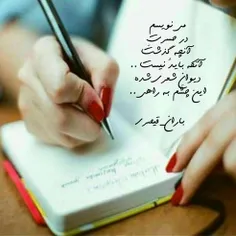 می نویسم
در حسرت
آنچه گذشت
آنکه باید نیست ..
دیوانِ شعری شده
این چشم به راهی ..
باران_قیصری